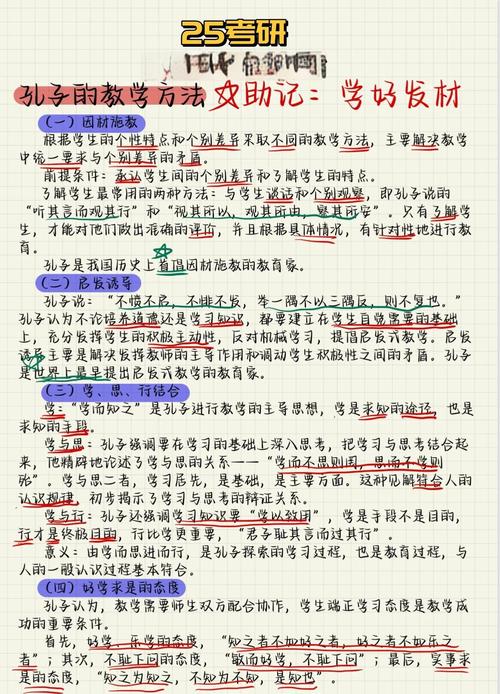 25考研
孔子的教学方法 ☆助记：学好发材
（一）因材施教
根据学生的个性特点和个别差异采取不同的教学方法，主要解决教学
中统一要求与个别差异的矛盾。
前提条件：承认学生间的个别差异和了解学生的特点。
了解学生最常用的两种方法：与学生谈话和个别观察，即孔子说的
“听其言而观其行”和“视其所以，观其所由，察其所安”。只有了解学
生，才能对他们做出准确的评价，并且根据具体情况，有针对性地进行教
育。
孔子是我国历史上首倡因材施教的教育家。
（二）启发诱导
孔子说：“不愤不启，不悱不发，举一隅不以三隅反，则不复也。”
孔子认为不论培养道德还是学习知识，都要建立在学生自觉需要的基础
上，充分发挥学生的积极主动性，反对机械学习，提倡启发式教学。启发
诱导主要是解决发挥教师的主导作用和调动学生积极性之间的矛盾。孔子
是世界上最早提出启发式教学的教育家。
（三）学、思、行结合
学：“学而知之”是孔子进行教学的主导思想，学是求知的途径，也是
求知的手段。
学与思：孔子强调要在学习的基础上深入思考，把学习与思考结合起
来，他精辟地论述了学与思的关系——“学而不思则罔，思而不学则
殆”。学与思二者，学习居先，是基础，是主要方面。这种见解符合人的
认识规律，初步揭示了学习与思考的辩证关系。
学与行：孔子还强调学习知识要“学以致用”，学是手段不是目的，
行才是终极目的，行比学更重要，“君子耻其言而过其行”。
意义：由学而思进而行，是孔子探索的学习过程，也是教育过程，与
人的一般认识过程基本符合。
（四）好学求是的态度
孔子认为，教学需要师生双方配合协作，学生端正学习态度是教学成
功的重要条件。
首先，好学、乐学的态度，“知之者不如好之者，好之者不如乐之
者”；其次，不耻下问的态度，“敏而好学，不耻下问”；最后，实事求
是的态度，“知之为知之，不知为不知，是知也”。